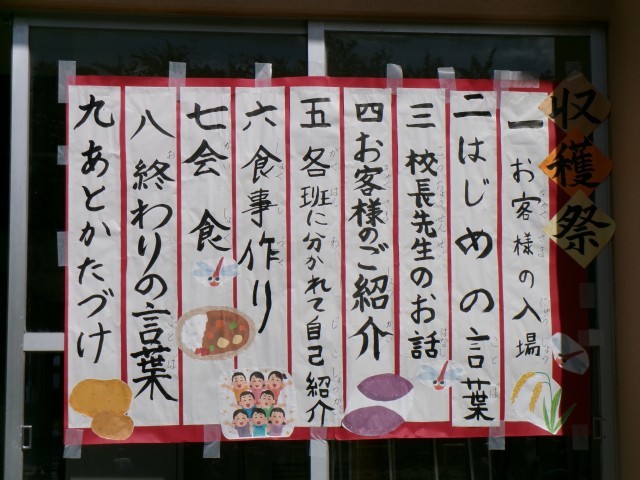 収穫祭
一 お客様の入場
二 はじめの言葉
三 校長先生のお話
四 お客様のご紹介
五 各班に分かれて自己紹介
六 食事作り
七 会食
八 終わりの言葉
九 あとかたづけ